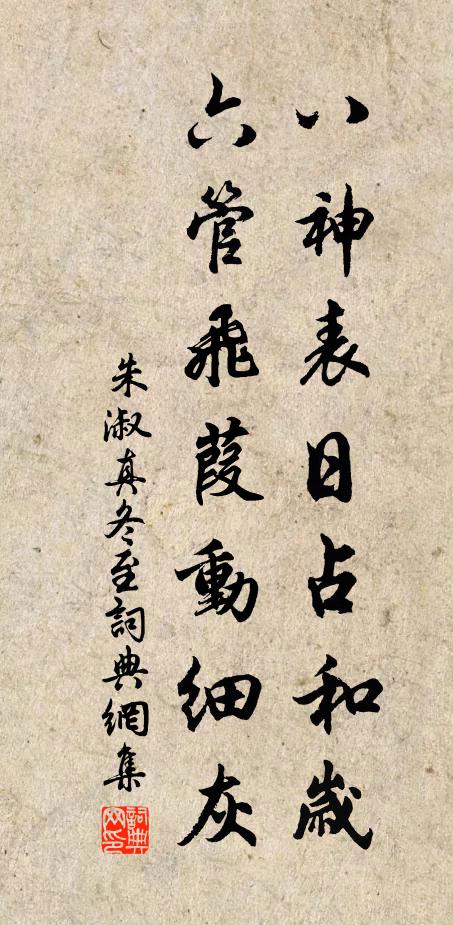 八神表日占和歲
六管飛葭動細灰
朱淑真冬至詞典網集
詞典網印